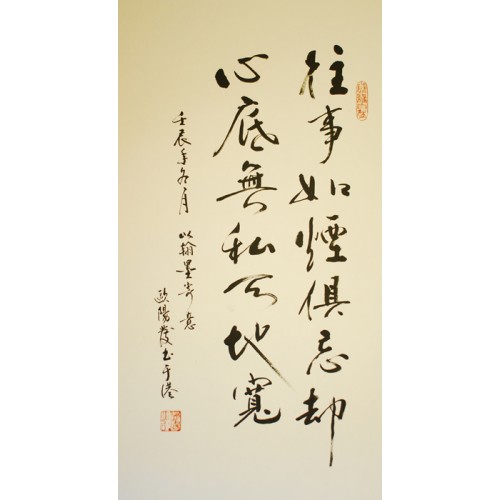 往事如煙俱忘却
心底無私天地寬
壬辰年冬月 以翰墨寄意
歐陽發书于港